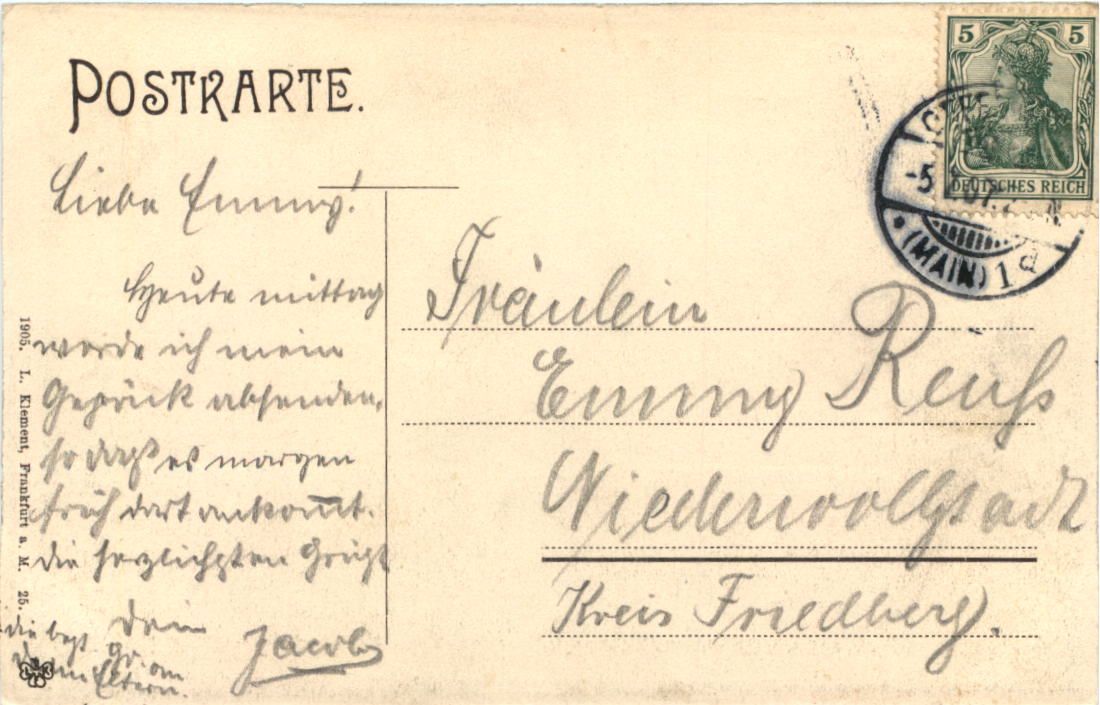 POSTKARTE.
5 5
DEUTSCHES REICH
(MAIN) 1 d
Liebe Emmy!
Heute mittag
werde ich mein
Gepäck absenden,
so daß es morgen
früh dort ankommt.
die herzlichsten Grüße
Dein
Jacob
die best. Gr. an
Deine Eltern.
Fräulein
Emmy Reuß
Niederwöllstadt
Kreis Friedberg.
1905. L. Klement, Frankfurt a. M. 25.